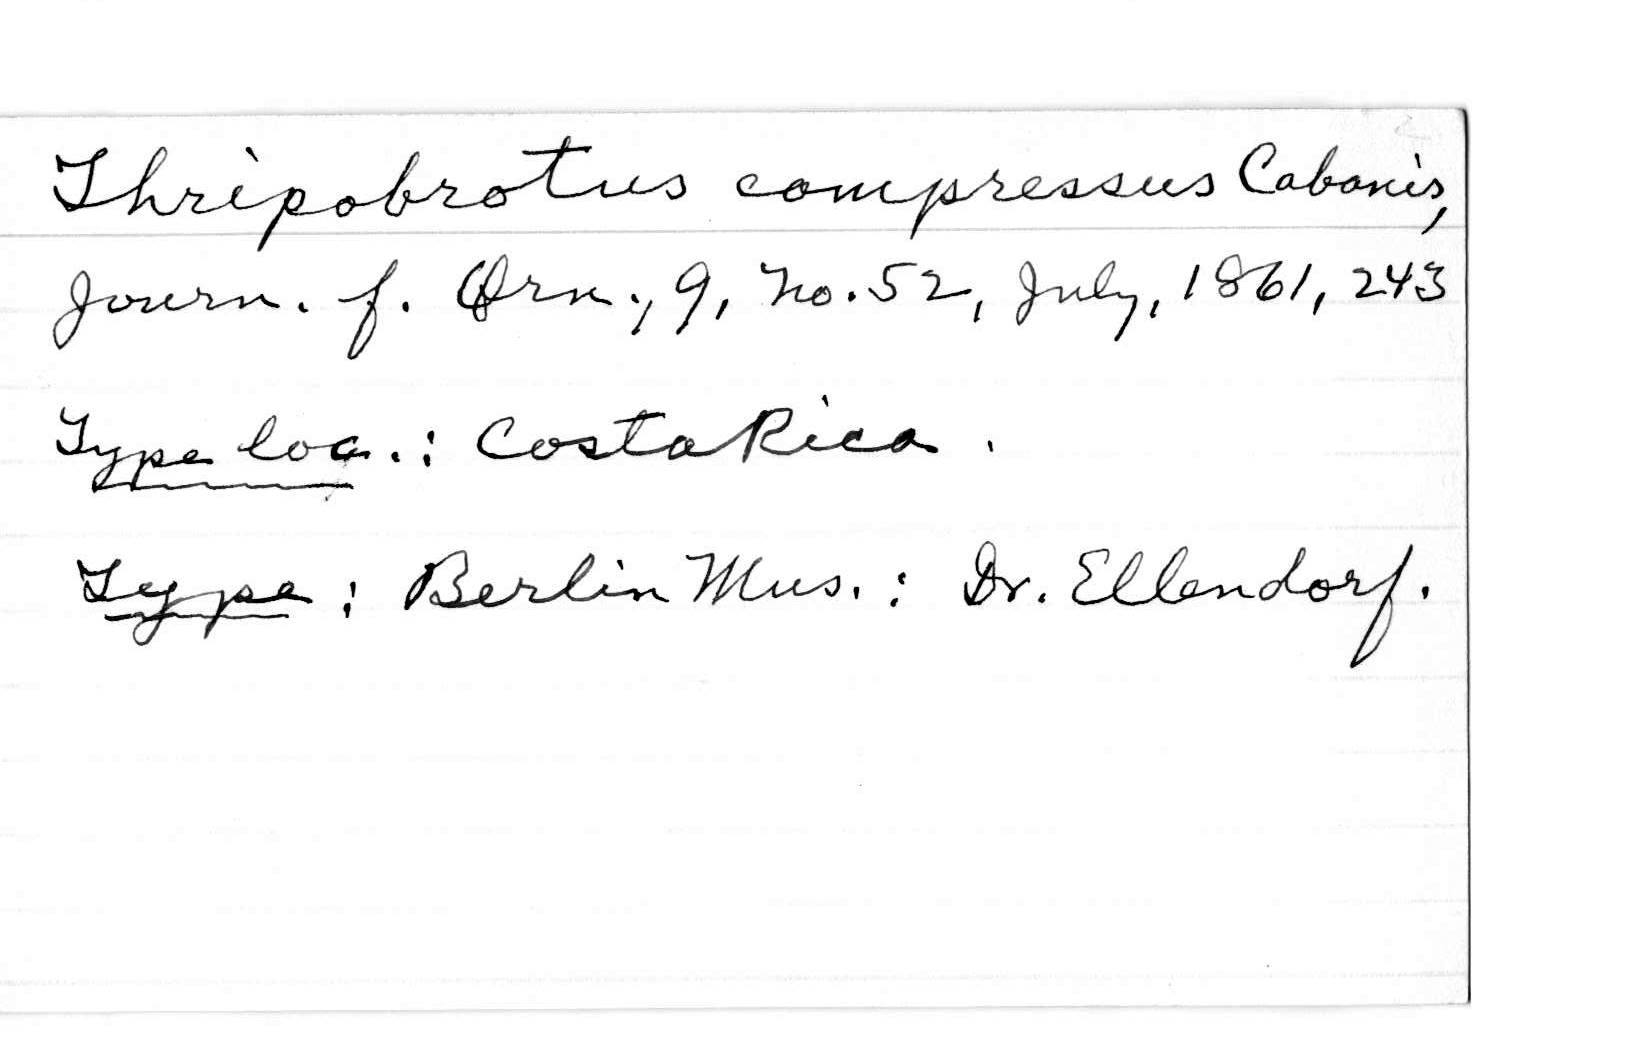 Thripobrotus compressus Cabanis,
Journ. f. Orn., 9, no. 52, July, 1861, 243
Type loc.: Costa Rica.
Type: Berlin Mus.: Dr. Ellendorf.